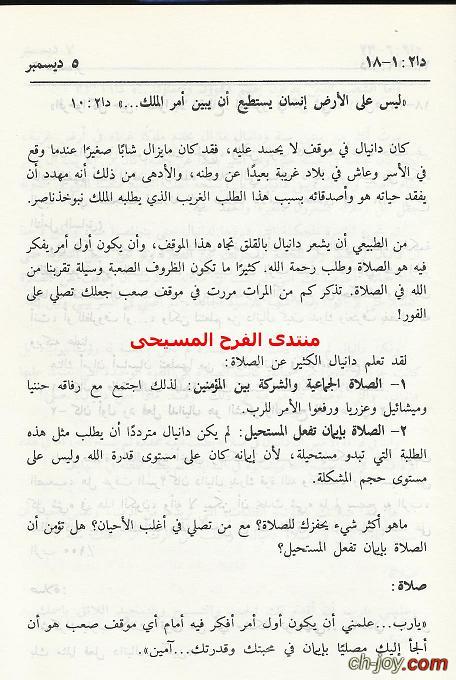 دا٢ : ١-١٨
٥ ديسمبر
«ليس على الأرض إنسان يستطيع أن يبين أمر الملك...» دا٢ : ١٠
كان دانيال في موقف لا يحسد عليه، فقد كان مايزال شابًا صغيرًا عندما وقع
في الأسر وعاش في بلاد غريبة بعيدًا عن وطنه، والأدهى من ذلك أنه مهدد أن
يفقد حياته هو وأصدقائه بسبب هذا الطلب الغريب الذي يطلبه الملك نبوخذناصر.
من الطبيعي أن يشعر دانيال بالقلق تجاه هذا الموقف، وأن يكون أول أمر يفكر
فيه هو الصلاة وطلب رحمة الله. كثيرًا ما تكون الظروف الصعبة وسيلة تقربنا من
الله في الصلاة. تذكر كم من المرات مررت في موقف صعب جعلك تصلي على
الفور!
منتدى الفرح المسيحى
لقد تعلم دانيال الكثير عن الصلاة:
١- الصلاة الجماعية والشركة بين المؤمنين: لذلك اجتمع مع رفاقه حننيا
وميشائيل وعزريا ورفعوا الأمر للرب.
٢- الصلاة بإيمان تفعل المستحيل: لم يكن دانيال مترددًا أن يطلب مثل هذه
الطلبة التي تبدو مستحيلة، لأن إيمانه كان على مستوى قدرة الله وليس على
مستوى حجم المشكلة.
ماهو أكثر شيء يحفزك للصلاة؟ مع من تصلي في أغلب الأحيان؟ هل تؤمن أن
الصلاة بإيمان تفعل المستحيل؟
صلاة:
«يارب...علمني أن يكون أول أمر أفكر فيه أمام أي موقف صعب هو أن
ألجأ إليك مصليًا بإيمان في محبتك وقدرتك...آمين».
ch-joy.com